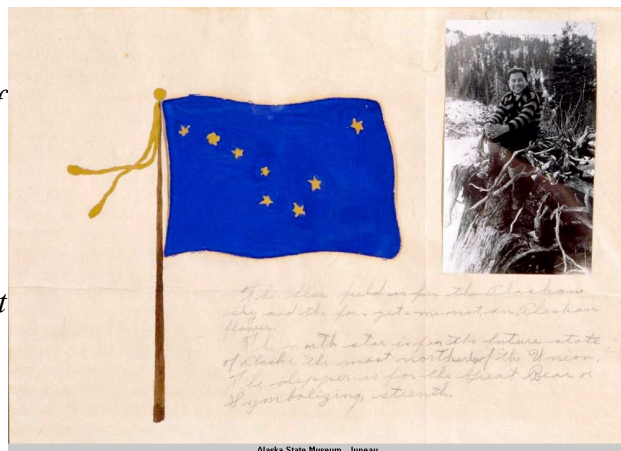 The blue field is for the Alaskan
sky and the for-get-me-not, an Alaskan
flower.
The north star is for the future state
of Alaska the most northerly of the Union.
The dipper is for the Great Bear
Symbolizing, strenth.
t
Alaska State Museum - Juneau